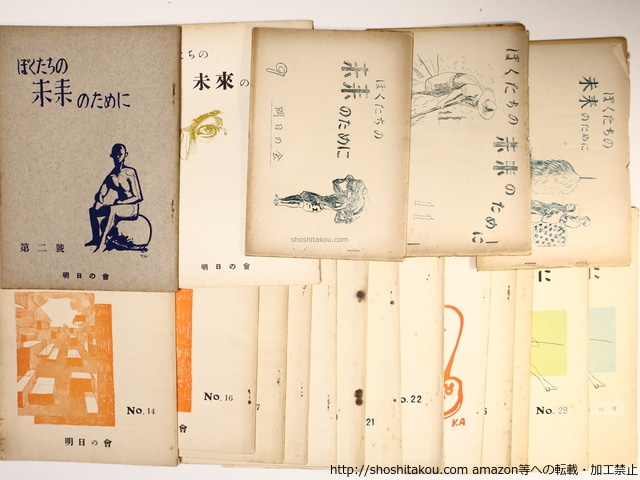 ぼくたちの
未来のために
第二號
明日の會
ちの
未來の
明日の會
ぼくたちの
未来のために
9
明日の会
shoshitakou.com
ぼくたちの
未来のために
11
ぼくたちの
未来のために
No. 14
明日の會
No. 16
會
7
21
No. 22
Y.A
6
に
No. 29
に
http://shoshitakou.com amazon等への転載・加工禁止